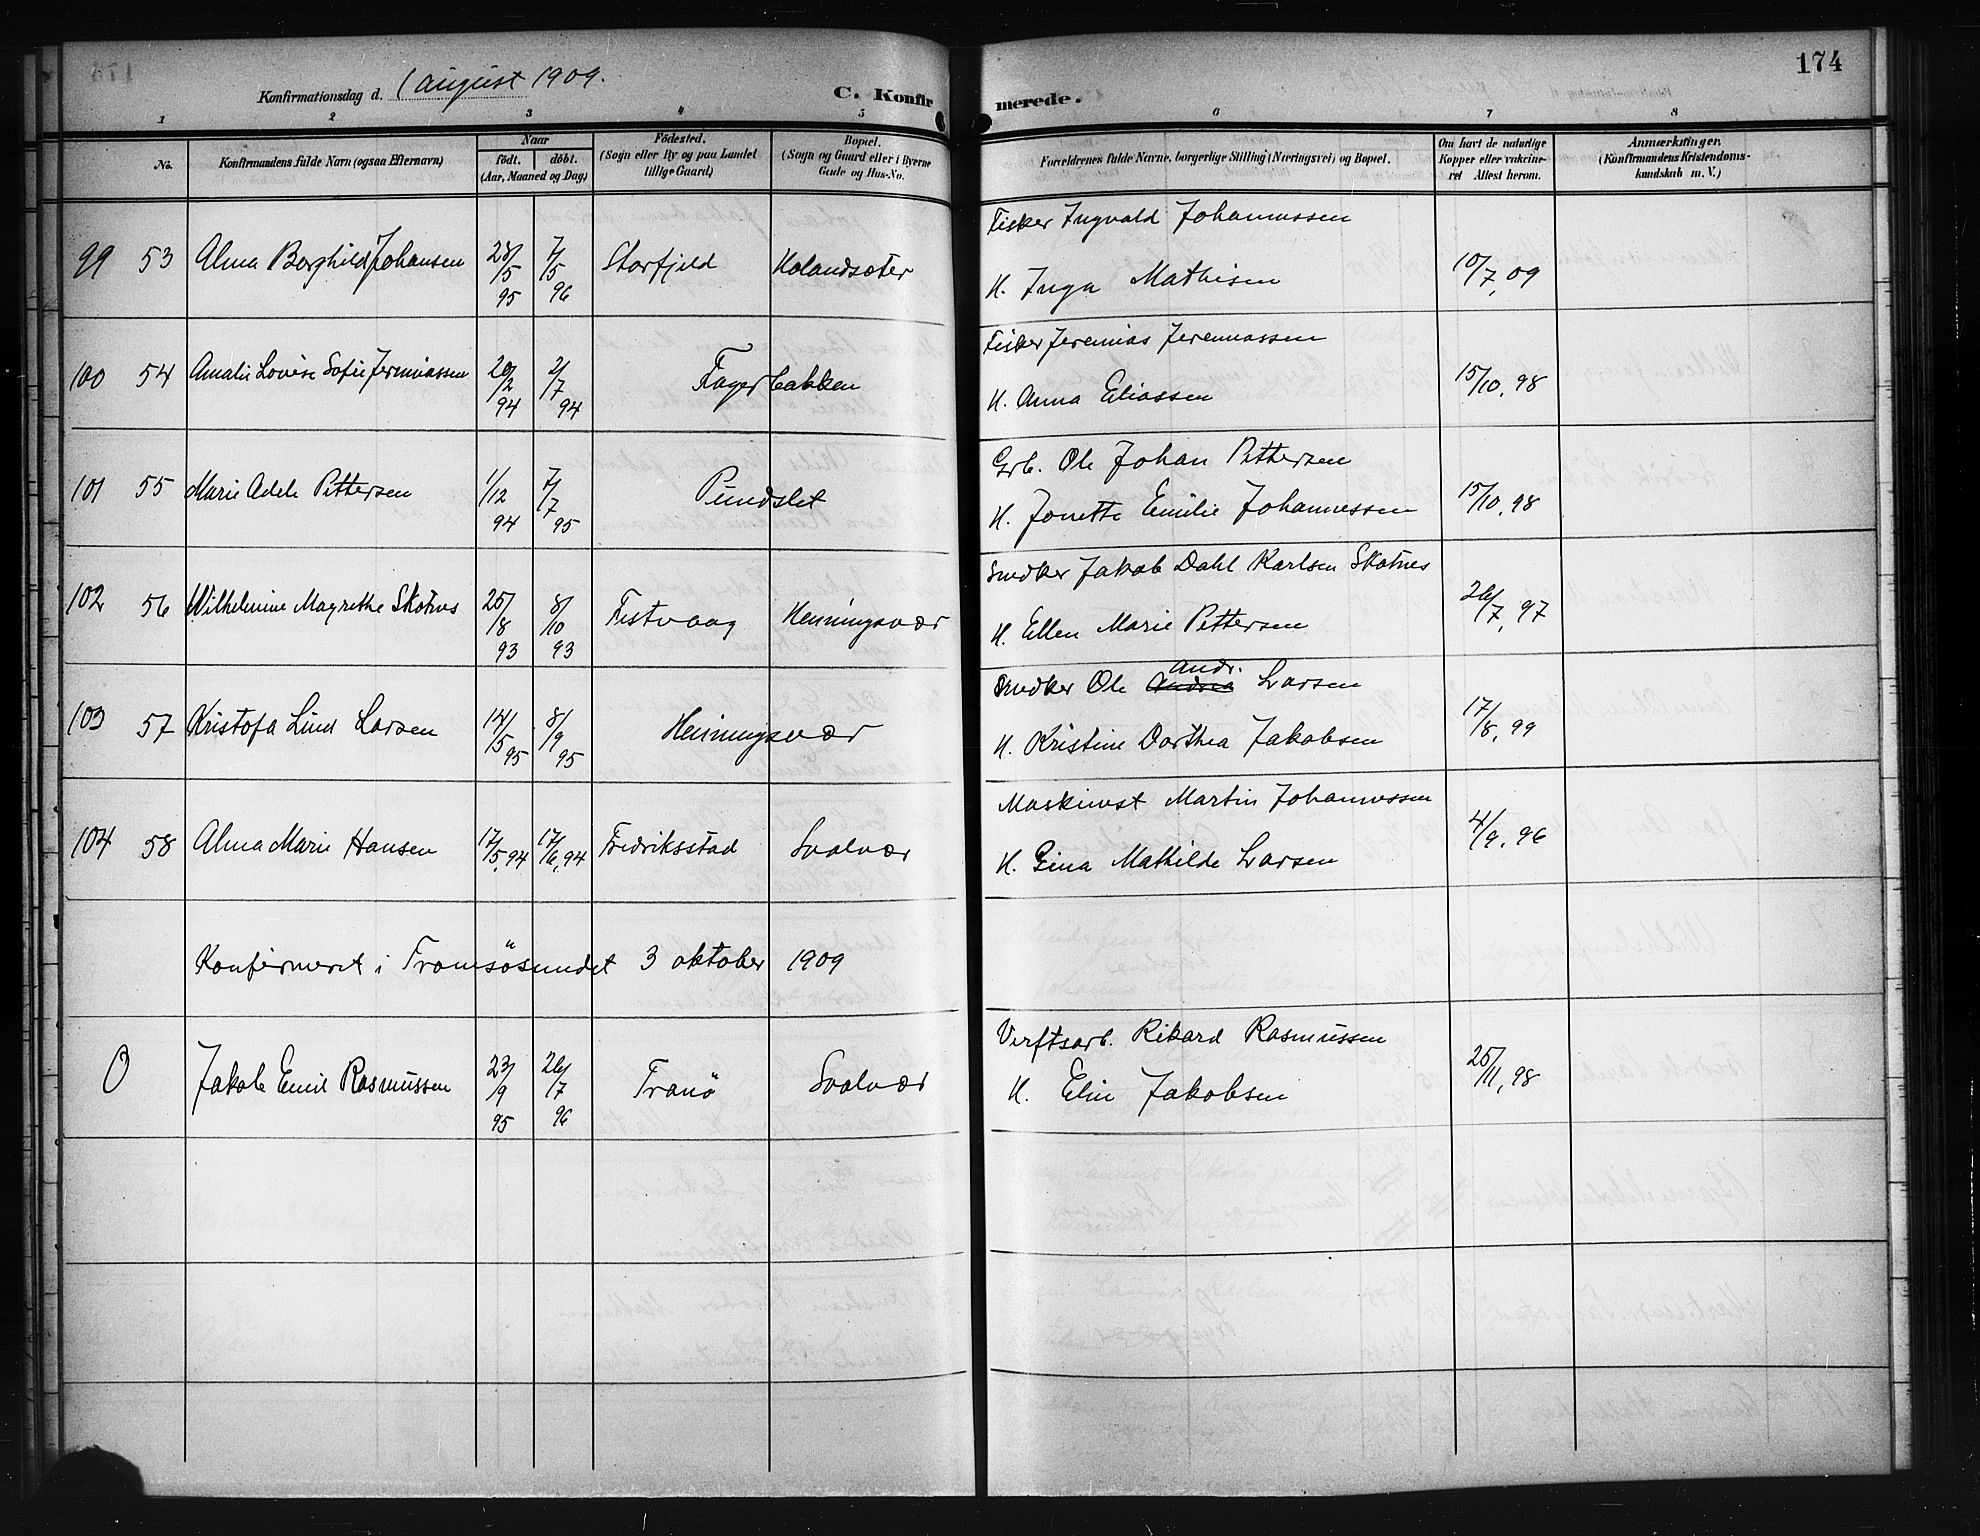 174
Konfirmationsdag d. 1 august 1909.
C. Konfirmerede.
1 2 3 4 5 6 7 8
No.
Konfirmandens fulde Navn (ogsaa Efternavn)
Naar
født. døbt.
(Aar, Maaned og Dag)
Fødested.
(Sogn eller By og paa Landet
tillige Gaard)
Bopæl.
(Sogn og Gaard eller i Byerne
Gade og Hus-No.
Forældrenes fulde Navne, borgerlige Stilling (Næringsvei) og Bopæl.
Om havt de naturlige
Kopper eller vakcine-
ret Attest herom.
Anmærkninger.
(Konfirmandens Kristendoms-
kundskab m. V.)
Fisker Ingvald Johannessen
99 53 Alma Borghild Johansen 28/5 95 7/5 96 Storfjeld Kolandsæter
H. Inga Mathisen 10/7, 09
Fisker Jeremias Jeremiassen
100 54 Amalie Lovise Sofie Jeremiassen 20/2 94 2/7 94 Fagerbakken
H. Anna Eliassen 15/10, 98
Grb. Ole Johan Pettersen
101 55 Marie Adele Pettersen 1/12 94 7/7 95 Pundslet
H. Jonette Emilie Johannessen 15/10, 98
Snedker Jakob Dahl Karlsen Skotnes
102 56 Wilhelmine Magrethe Skotnes 25/8 93 8/10 93 Festvaag Henningsvær
H. Ellen Marie Pettersen 26/7, 97
Snedker Ole Andrea Andr. Larsen
103 57 Kristofa Lind Larsen 14/5 95 8/9 95 Henningsvær
H. Kristine Dorthea Jakobsen 17/8, 99
Maskinist Martin Johannessen
104 58 Alma Marie Hansen 17/5, 94 17/6, 94 Fredriksstad Svolvær
H. Gina Mathilde Larsen 4/9, 96
Konfirmeret i Tromsösundet 3 oktober 1909
Verftsarb. Rikard Rasmussen
0 Jakob Emil Rasmussen 23/9 95 26/7 96 Tranö Svolvær
H. Elin Jakobsen 25/11, 98